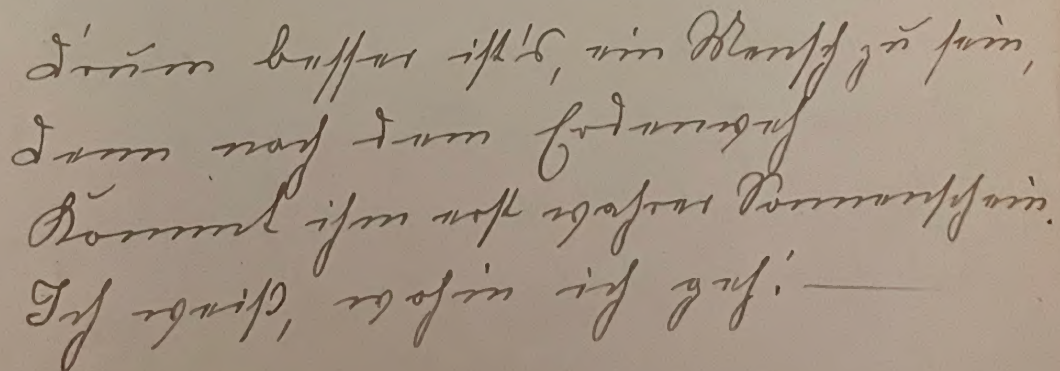 D'rum besser ist's, ein Mensch zu sein,
denn nach dem Erdenweh
Kommt ihm erst wahrer Sonnenschein.
Ich weiß, wohin ich geh! —